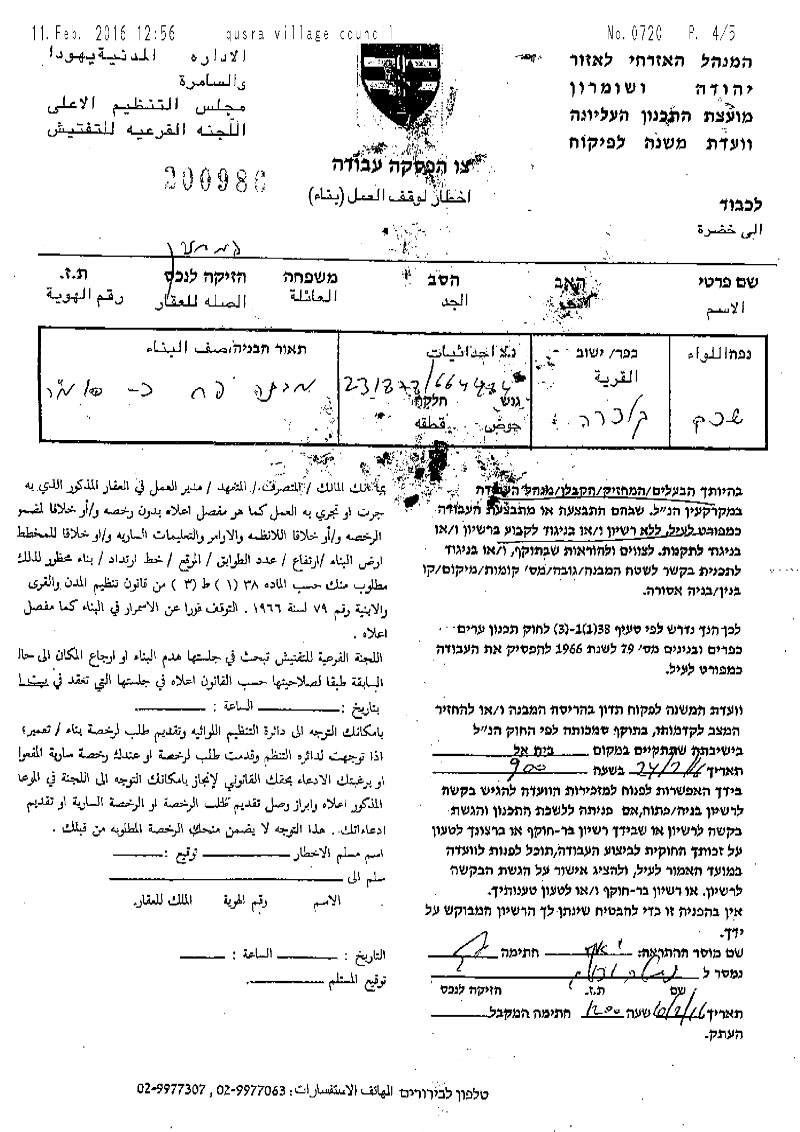 11. Feb. 2016 12:56 qusra village council No. 0720 P. 4/5
המנהל האזרחי לאזור
יהודה ושומרון
מועצת התכנון העליונה
וועדת משנה לפיקוח
الاداره المدنية يهودا
والسامرة
مجلس التنظيم الاعلى
اللجنه الفرعيه للتفتيش
צו הפסקה עבודה
اخطار لوقف العمل (بناء)
לכבוד
الى حضرة
שם פרטי האב הסב משפחה הזיקה לנכס ת.ז.
الاسم الجد العائلة الصله للعقار رقم الهوية
נפה/اللواء כפר/ ישוב נ.צ احداثيات תאור הבניה/صف البناء
القرية 231878/664494
גוש חלקה
حوض قطقه
שכם
בהיותך הבעלים/המחזיק/הקבלן/מנהל העבודה
במקרקעין הנ"ל. שבהם התבצעה או מתבצעת העבודה
כמפורט לעיל, ללא רשיון ו/או בניגוד לקבוע ברשיון ו/או
בניגוד לתקנות. לצווים ולהוראות שבתוקף, ו/או בניגוד
לתכנית בקשר לשטח המבנה/גובה/מס' קומות/מיקום/קו
בנין/בניה אסורה.
לכן הנך נדרש לפי סעיף 38(1)-(3) לחוק תכנון ערים
כפרים ובנינים מס' 79 לשנת 1966 להפסיק את העבודה
כמפורט לעיל.
וועדת המשנה לפקוח תדון בהריסת המבנה ו/או להחזיר
המצב לקדמותו, בתוקף סמכותה לפי החוק הנ"ל
בישיבתה שתתקיים במקום בית אל
תאריך 24/2/16 בשעה 900
בידך האפשרות לפנות למזכירות הוועדה להגיש בקשה
לרשיון בניה/פתוח, אם פניתה ללשכת התכנון והגשת
בקשה לרשיון או שבידך רשיון בר-תוקף או ברצונך לטעון
על זכותך החוקית לביצוע העבודה, תוכל לפנות לוועדה
במועד האמור לעיל, ולהציג אישור על הגשת הבקשה
לרשיון. או רשיון בר-תוקף ו/או לטעון טענותיך.
אין בהפניה זו כדי להבטיח שינתן לך הרשיון המבוקש על
ידך.
שם מוסר ההתראה: חתימה
נמסר ל
שם ת.ז. הזיקה לנכס
תאריך 10/2/16 שעה 1200 חתימה המקבל
העתק.
المالك / المتصرف / المتعهد / مدير العمل في العقار المذكور الذي به
جرت او تجري به العمل كما هو مفصل اعلاه بدون رخصه و/أو خلافا
الرخصه و/أو خلافا للانظمه والاوامر والتعليمات الساريه و/او خلافا للمخطط
ارض البناء /ارتفاع / عدد الطوابق / الموقع / خط ارتداد / بناء محظور لذلك
مطلوب منك حسب الماده ٣٨ (١) ط (٣) من قانون تنظيم المدن والقرى
والابنية رقم ٧٩ لسنة ١٩٦٦. التوقف فورا عن الاسمرار في البناء كما مفصل
اعلاه.
اللجنة الفرعية للتفتيش تبحث في جلستها هدم البناء او ارجاع المكان الى
السابقة طبقا لصلاحيتها حسب القانون اعلاه في جلستها التي تعقد في
بتاريخ: الساعة:
بامكانك التوجه الى دائرة التنظيم اللوائيه وتقديم طلب لرخصة بناء / تعمير؛
اذا توجهت لدائره التنظم وقدمت طلب لرخصة او عندك رخصة سارية
او برغبتك الادعاء بحقك القانوني لإنجاز بامكانك التوجه الى اللجنة في
المذكور اعلاه وابراز وصل تقديم طلب الرخصة او الرخصة السارية او تقديم
ادعاءاتك. هذا التوجه لا يضمن منحك الرخصة المطلوبه من قبلك.
اسم مسلم الاخطار توقيع:
سلم الى
الاسم رقم الهوية الملك للعقار.
التاريخ: الساعة:
توقيع المستلم
טלפון לבירורים الهاتف الاستفسارات: 02-9977063, 02-9977307